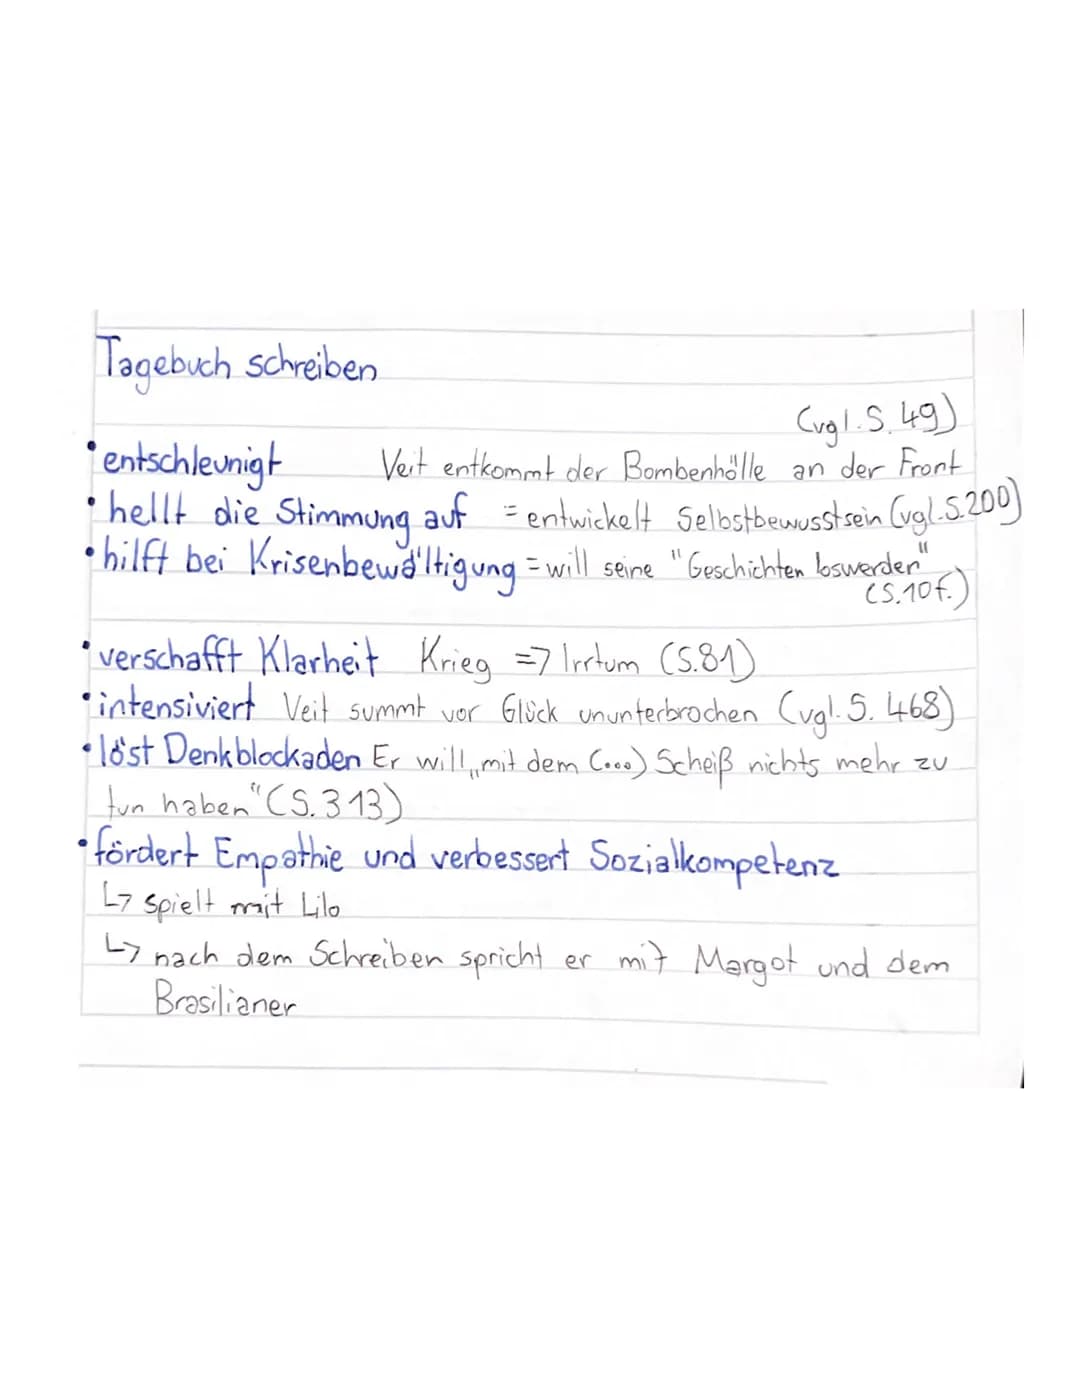 Tagebuch schreiben
(vgl. S. 49)
• entschleunigt Veit entkommt der Bombenhölle an der Front
• hellt die Stimmung auf = entwickelt Selbstbewusstsein (vgl. S. 200)
• hilft bei Krisenbewältigung = will seine "Geschichten loswerden"
(S. 10f.)
• verschafft Klarheit Krieg => Irrtum (S. 81)
• intensiviert Veit summt vor Glück ununterbrochen (vgl. S. 468)
• löst Denkblockaden Er will „mit dem (...) Scheiß nichts mehr zu
tun haben" (S. 313)
• fördert Empathie und verbessert Sozialkompetenz
↳ spielt mit Lilo
↳ nach dem Schreiben spricht er mit Margot und dem
Brasilianer